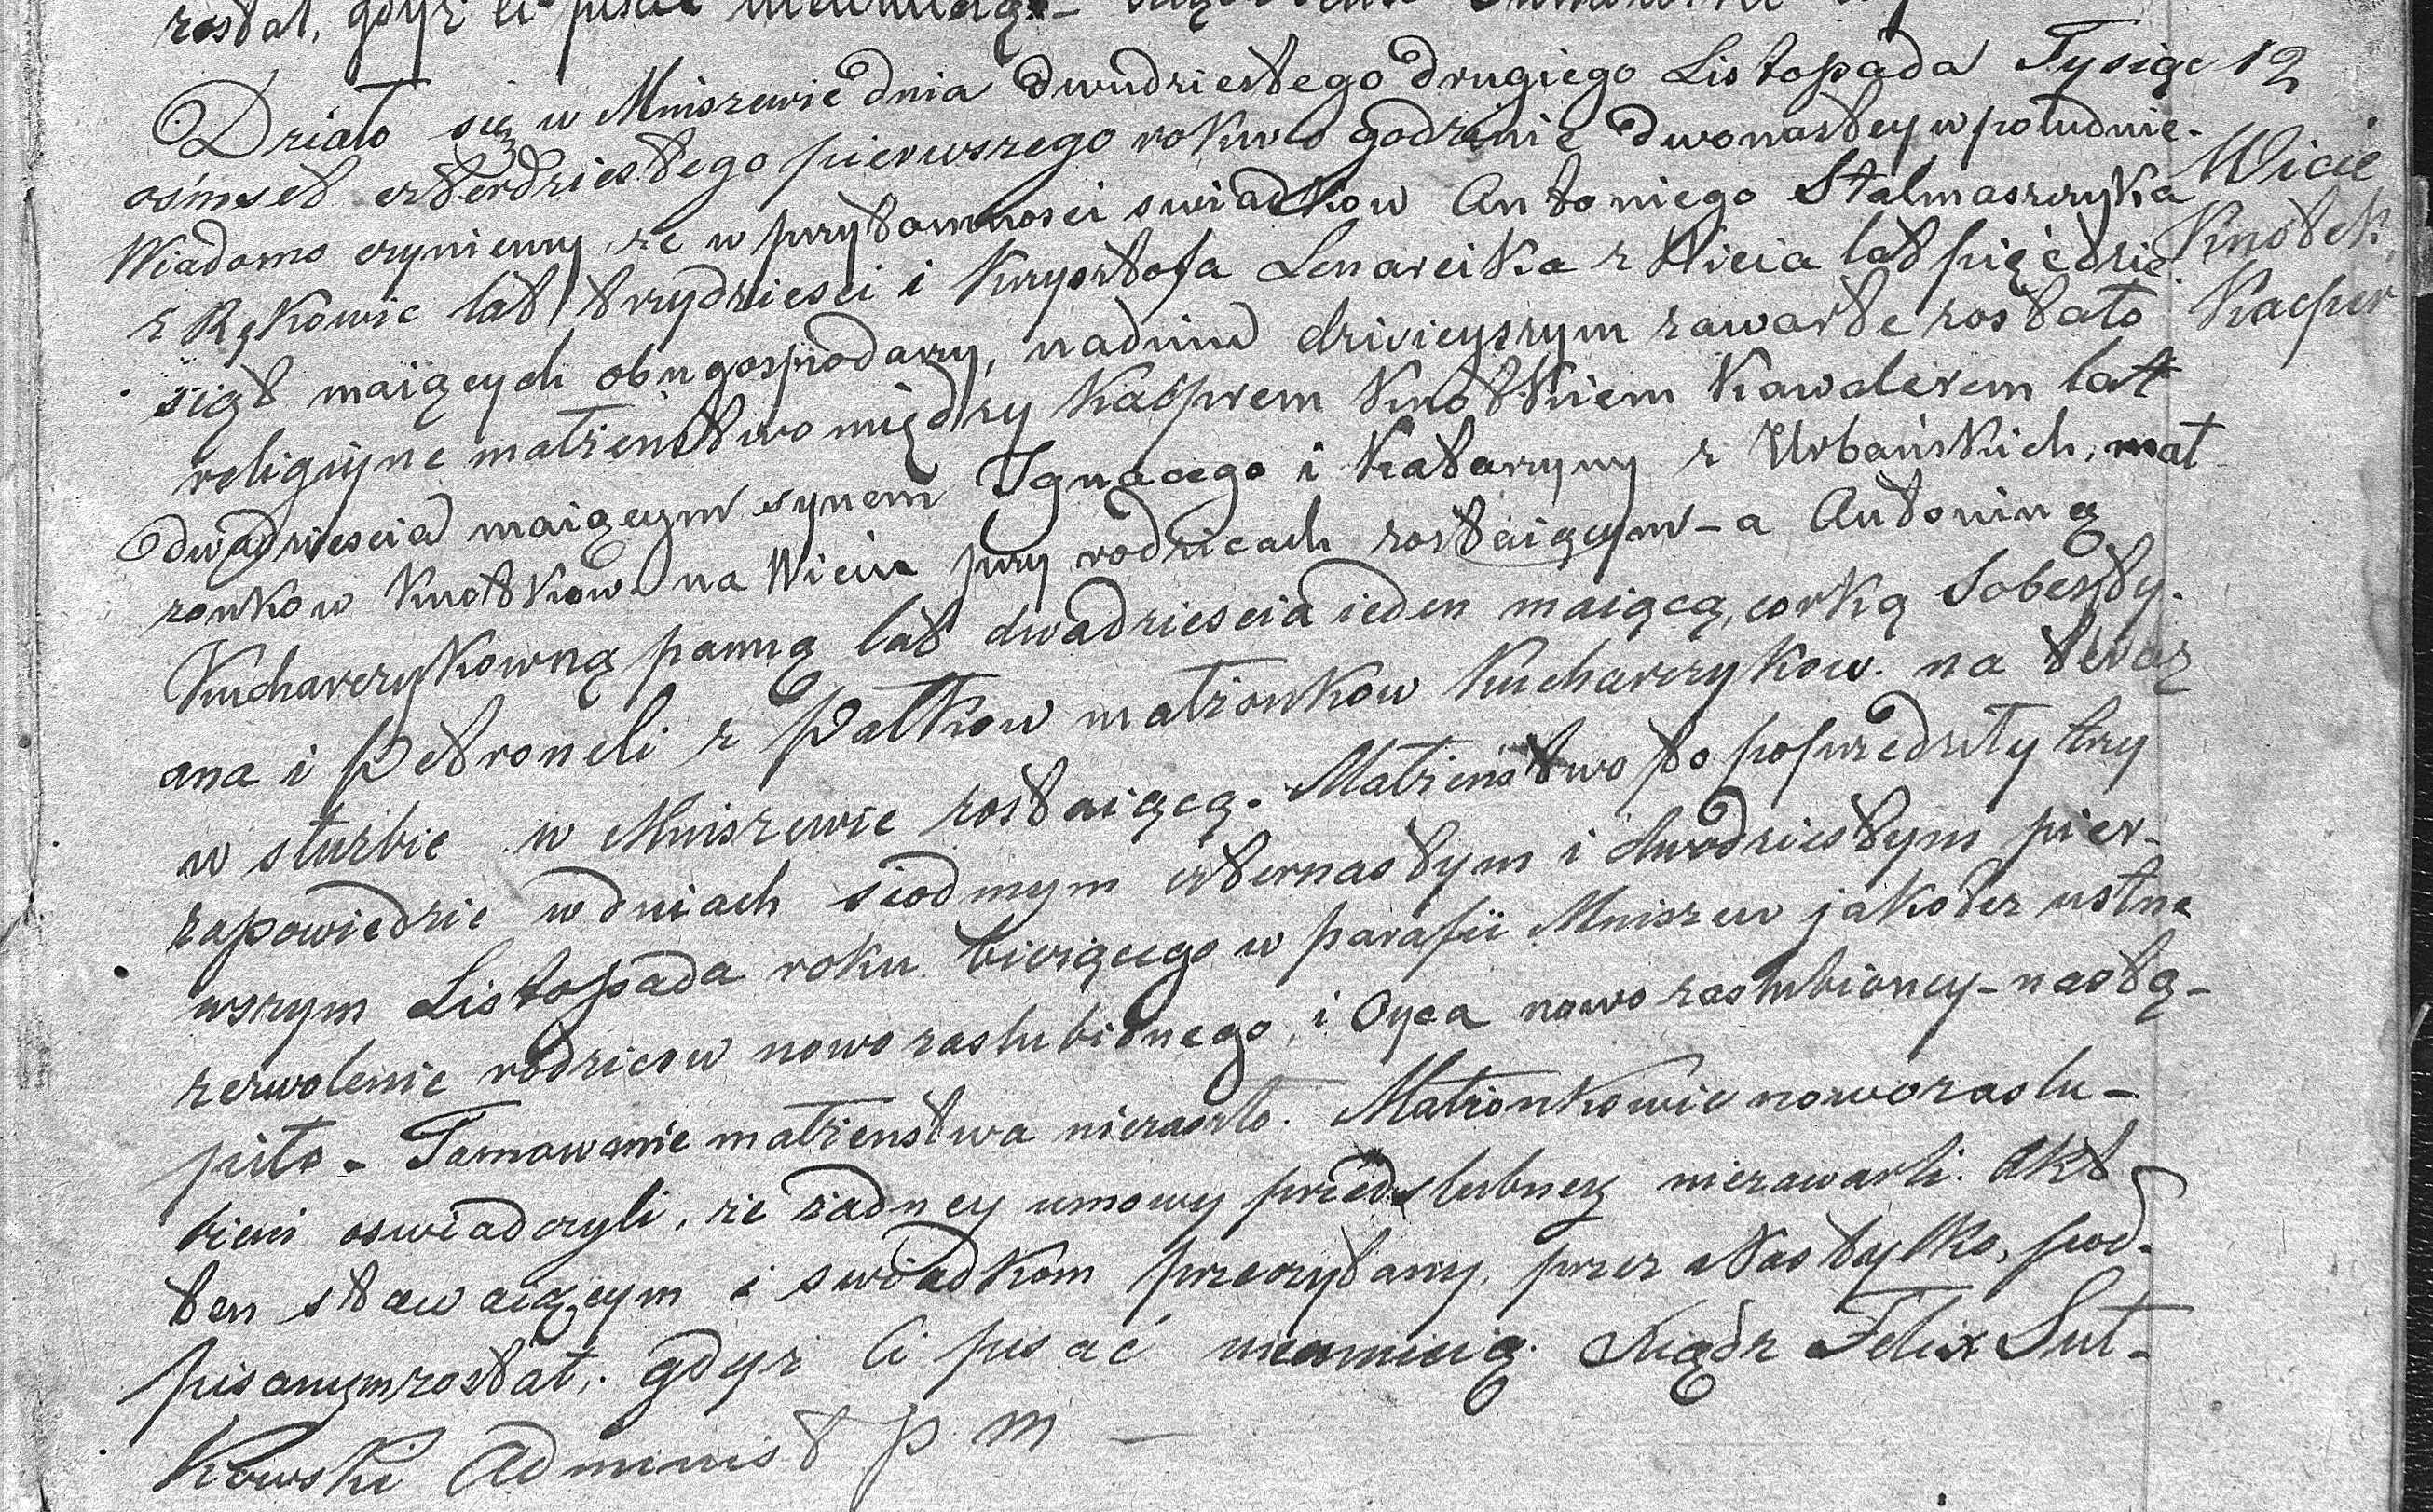 zostal, gdyż ci pisać
Działo się w Mniszewie dnia dwudziestego drugiego Listopada Tysiąc
12
ośmset czterdziestego pierwszego roku o godzinie dwonastey w południe.
Wiadomo czyniemy, że w przytomnosci swiadkow Antoniego Stalmaszczyka
Wicie
z Rękowic lat trzydziesci i Krysztofa Lenarcika z Wicia lat pięćdzie
Knotek
siąt maiących obu gospodarzy, nadniu dzisieyszym zawarte zostało
Kacper
religiyne małżenstwo między Kacprem Knotkiem Kawalerem lat
dwadziescia maiącym synem Ignacego i Katarzyny z Urbańskich, mał
zonkow Knotkow na Wiciu przy rodzicach zostaiącym - a Antoniną
Kucharczykowną panną lat dwadziescia ieden maiącą, corką Sobesty.
ana i Petroneli z Pałkow małżonkow Kucharczykow. na teraz
w służbie w Mniszewie zostaiącą. Małżenstwo to poprzedziły trzy
zapowiedzie w dniach siodmym czternastym i dwódziestym pier-
wszym Listopada roku bieżącego w parafii Mniszew jakotez ustne
zezwolenie rodzicow nowo zaslubionego, i Oyca nowo zaslubioney - nastą-
piło - Tamowanie małżenstwa niezaszło. Małżonkowie nowozaslu-
bieni oswiadczyli, że żadney umowy przedslubney niezawarli. Akt
ten stawaiącym i swiadkom przeczytany, przez Nas tylko, pod-
pisanym zostal, gdyż Ci pisać nieumieią. Xiądz Felix Sut-
kowski Administ P M